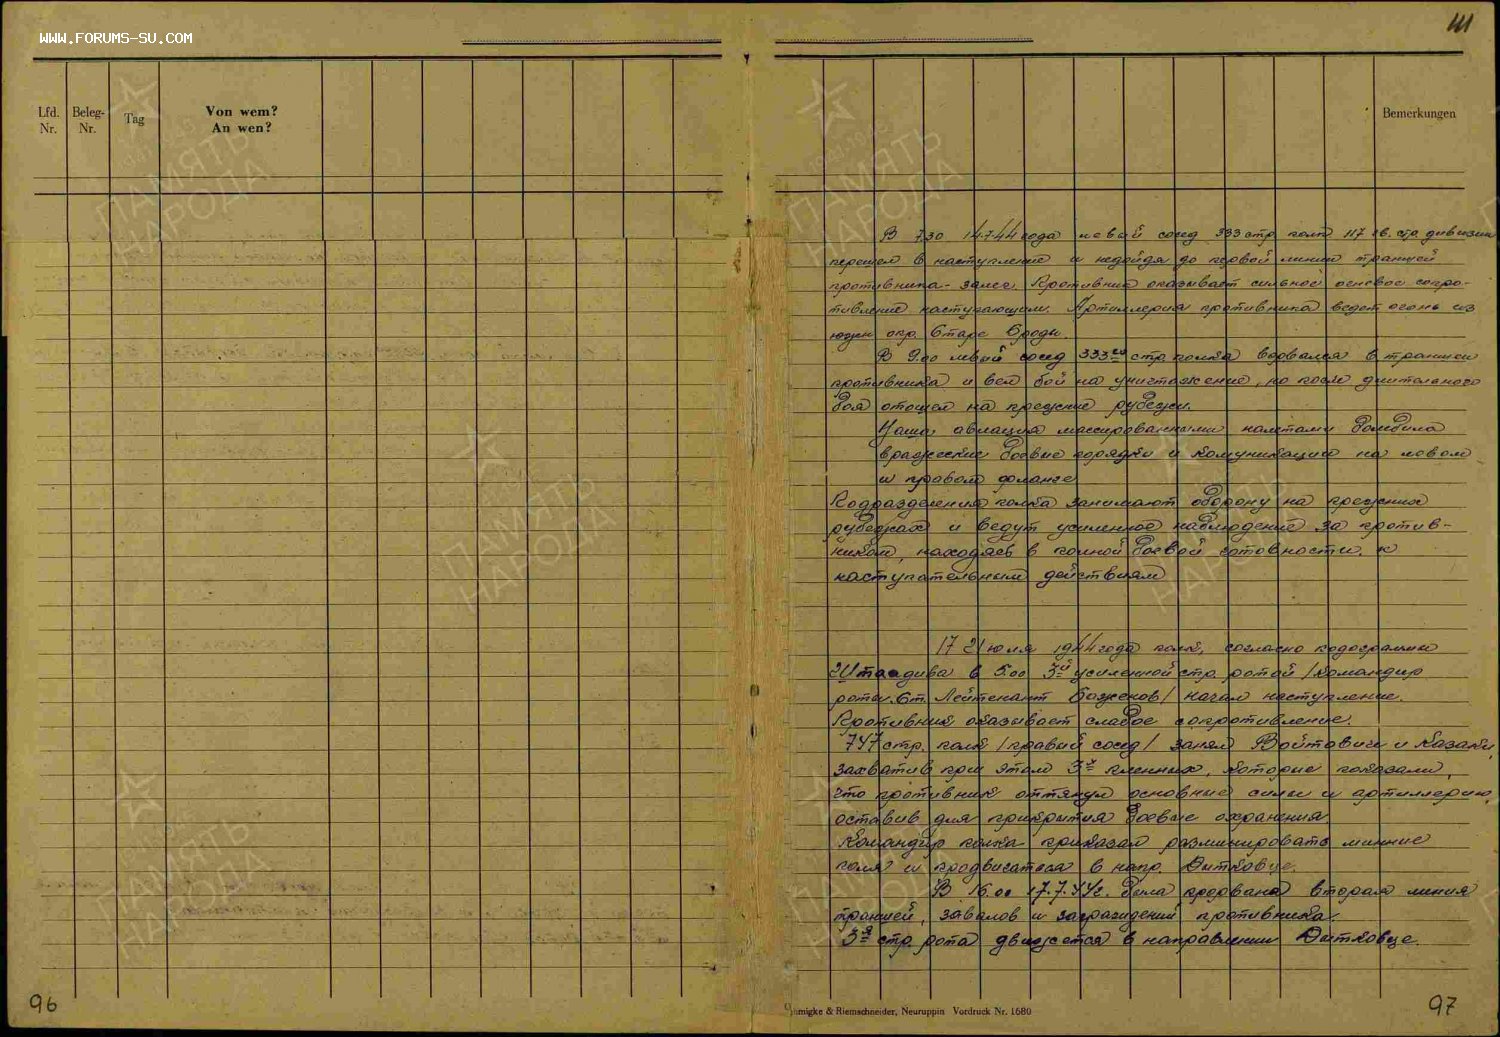 WWW.FORUMS-SU.COM
111
Lfd. Nr.
Beleg-Nr.
Tag
Von wem?
An wen?
Bemerkungen
ПАМЯТЬ
НАРОДА
В 7.30 14.7.44 года левый сосед 333 стр. полк 117 гв. стр. дивизии
перешел в наступление и недойдя до первой линии траншей
противника - залег. Противник оказывает сильное огневое сопро-
тивление наступающим. Артиллерия противника ведет огонь из
южн. окр. Старе Броды.
В 9.00 левый сосед 333го стр. полка ворвался в траншеи
противника и вел бой на уничтожение, но после длительного
боя отошел на прежние рубежи.
Наша авиация массированными налетами бомбила
вражеские боевые порядки и комуникации на левом
и правом фланге
Подразделения полка занимают оборону на прежних
рубежах и ведут усиленное наблюдение за против-
ником, находясь в полной боевой готовности к
наступательным действиям
17 июля 1944 года полк, согласно кодограммы
Штадива в 5.00 3й усиленной стр. ротой /Командир
роты Ст. Лейтенант Боженов/ начал наступление.
Противник оказывает слабое сопротивление.
747 стр. полк /правый сосед/ занял Войтовичи и Казаки,
захватив при этом 3х пленных, которые показали,
что противник оттянул основные силы и артиллерию,
оставив для прикрытия боевые охранения.
Командир полка приказал разминировать минные
поля и продвигаться в напр. Дитковце.
В 16.00 17.7.44г. была прорвана вторая линия
траншей, завалов и заграждений противника.
3я стр. рота движется в направлении Дитковце.
96
97
& Riemschneider, Neuruppin Vordruck Nr. 1680